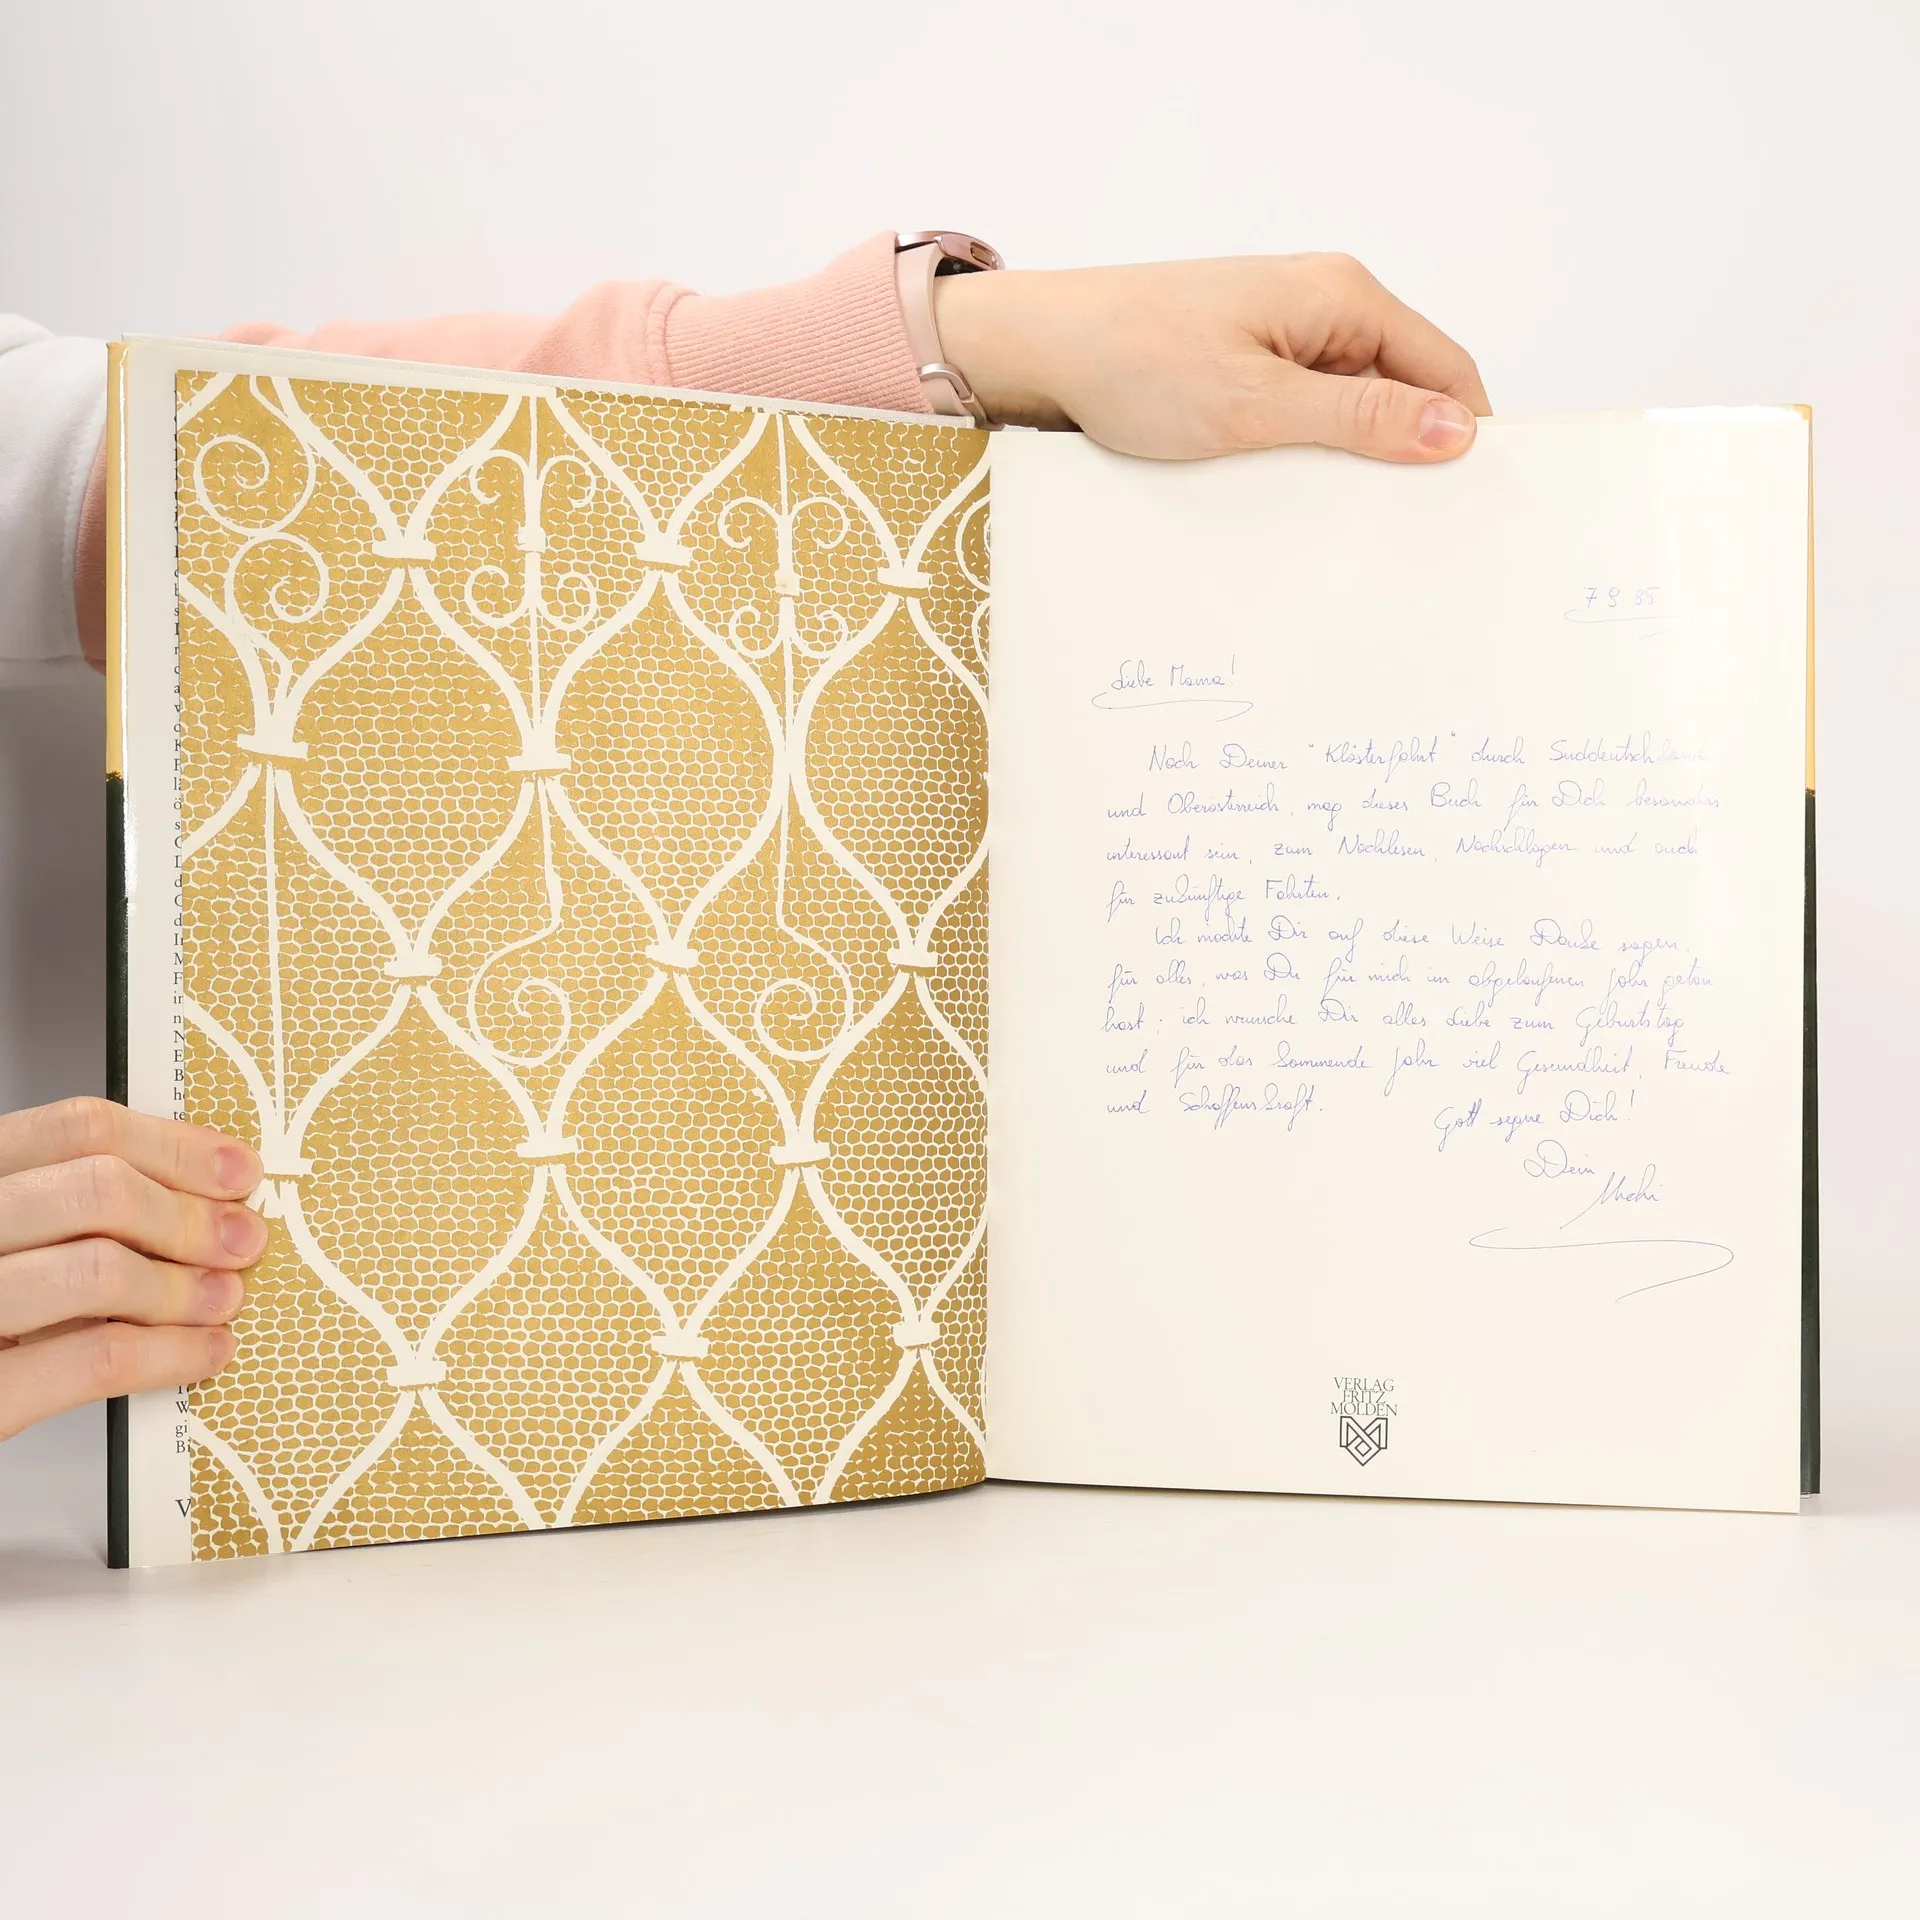 7 9 85
Liebe Mama!
Nach Deiner "Klösterfahrt" durch Süddeutschland
und Oberösterreich, mag dieses Buch für Dich besonders
interessant sein, zum Nachlesen, Nachschlagen und auch
für zukünftige Fahrten.
Ich möchte Dir auf diese Weise Danke sagen,
für alles, was Du für mich im abgelaufenen Jahr getan
hast; ich wünsche Dir alles Liebe zum Geburtstag
und für das kommende Jahr viel Gesundheit, Freude
und Schaffenskraft.
Gott segne Dich!
Dein
Michi
VERLAG
FRITZ
MOLDEN